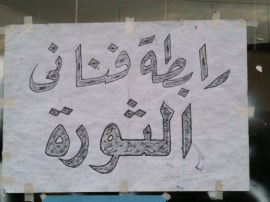 رابطة فناني
الثورة